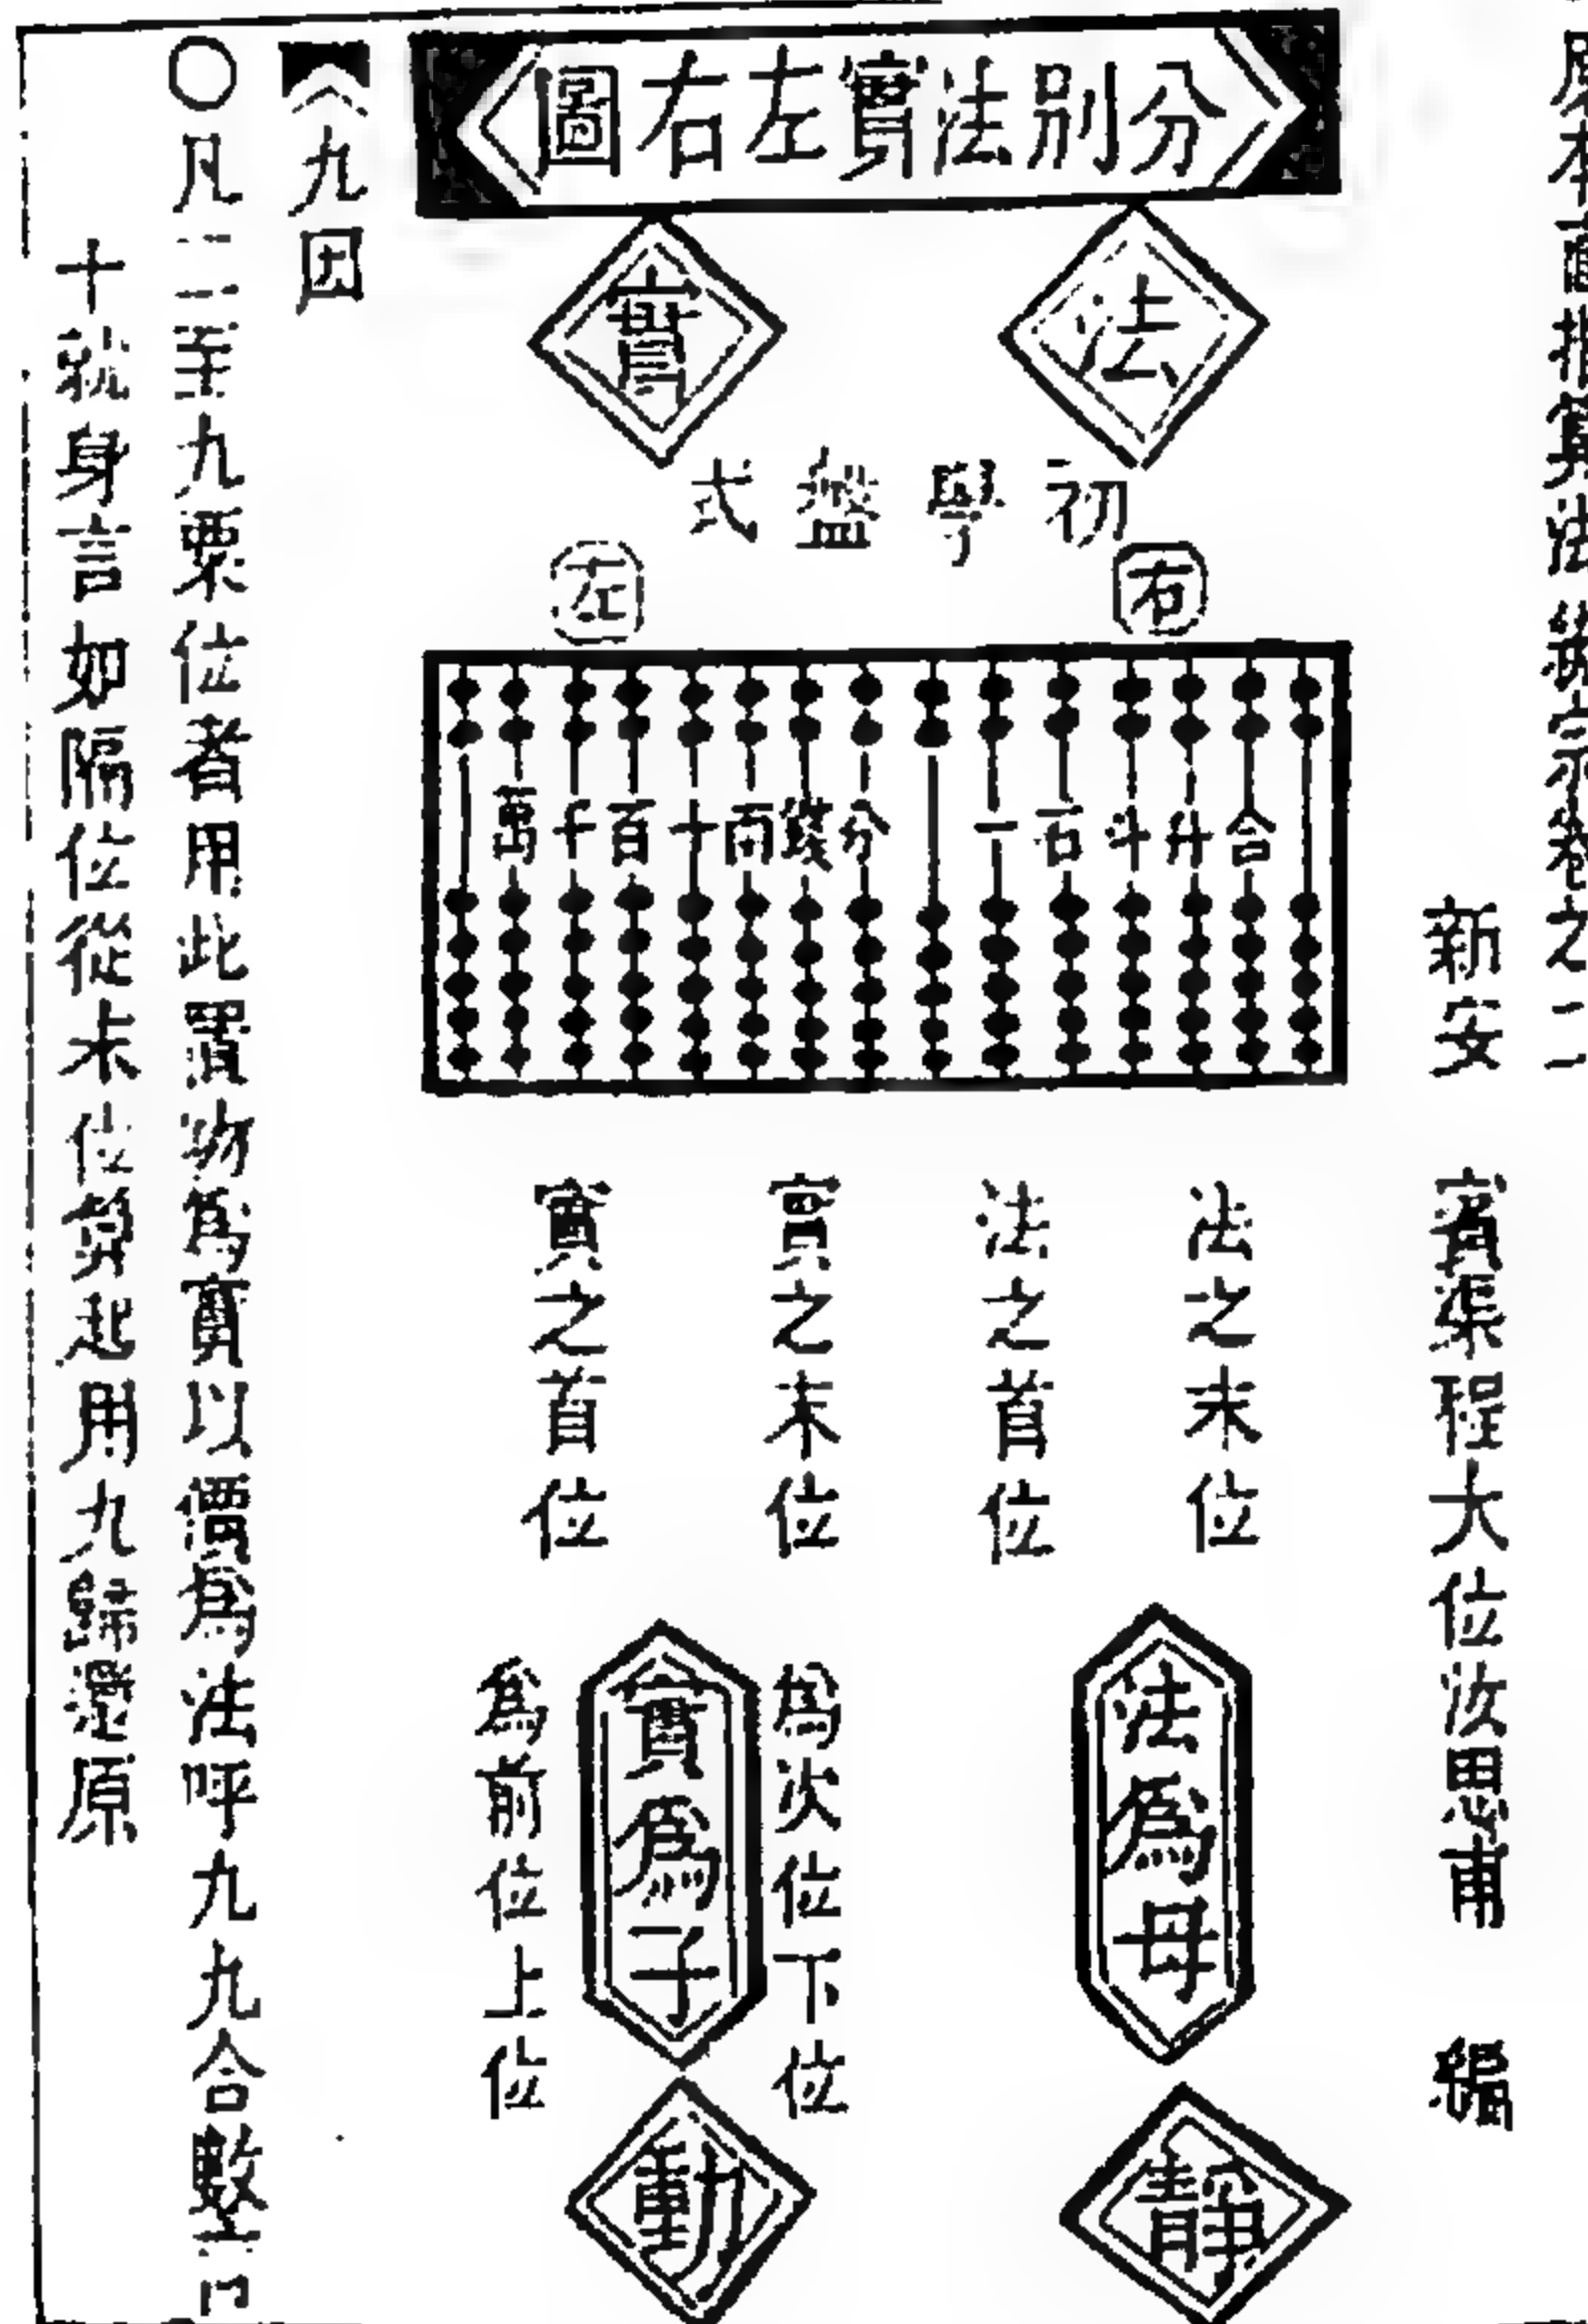 原本直指算法統宗卷之二
新安　賓渠程大位汝思甫　編
分別法實左右圖
法
實
初學盤式
右
左
合升斗石一　分錢兩十百千萬
法之末位
法之首位
實之末位
實之首位
法為母
為次位下位
實為子
為前位上位
靜
動
九因
○凡二至九位者用此置物為實以價為法呼九九合數言
十就身言如隔位從末位算起用九歸還原